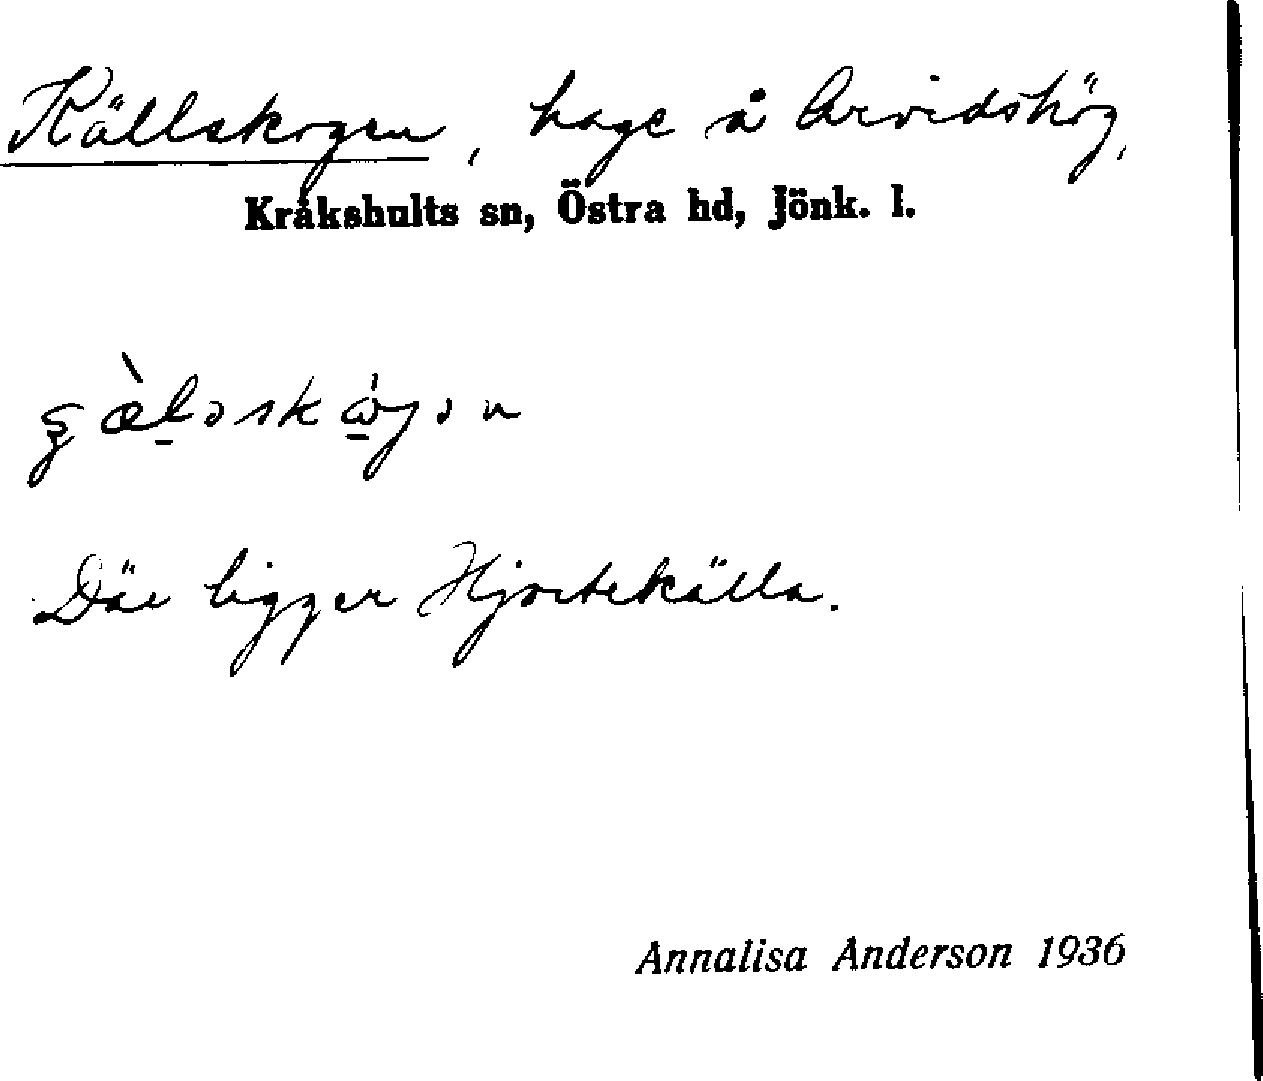 Källskogen, hage å Arvidshög,
Kråkshults sn, Östra hd, Jönk. l.
Där ligger Hjortekälla.
Annalisa Anderson 1936